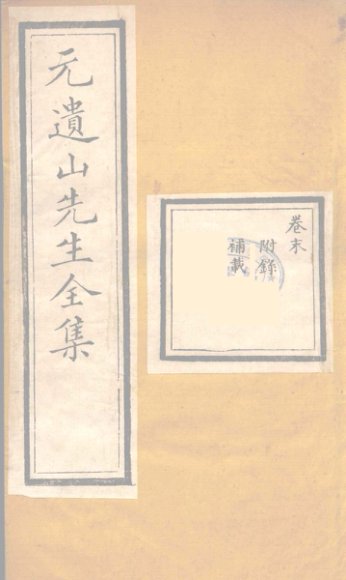 元遺山先生全集
卷末
附錄
補載